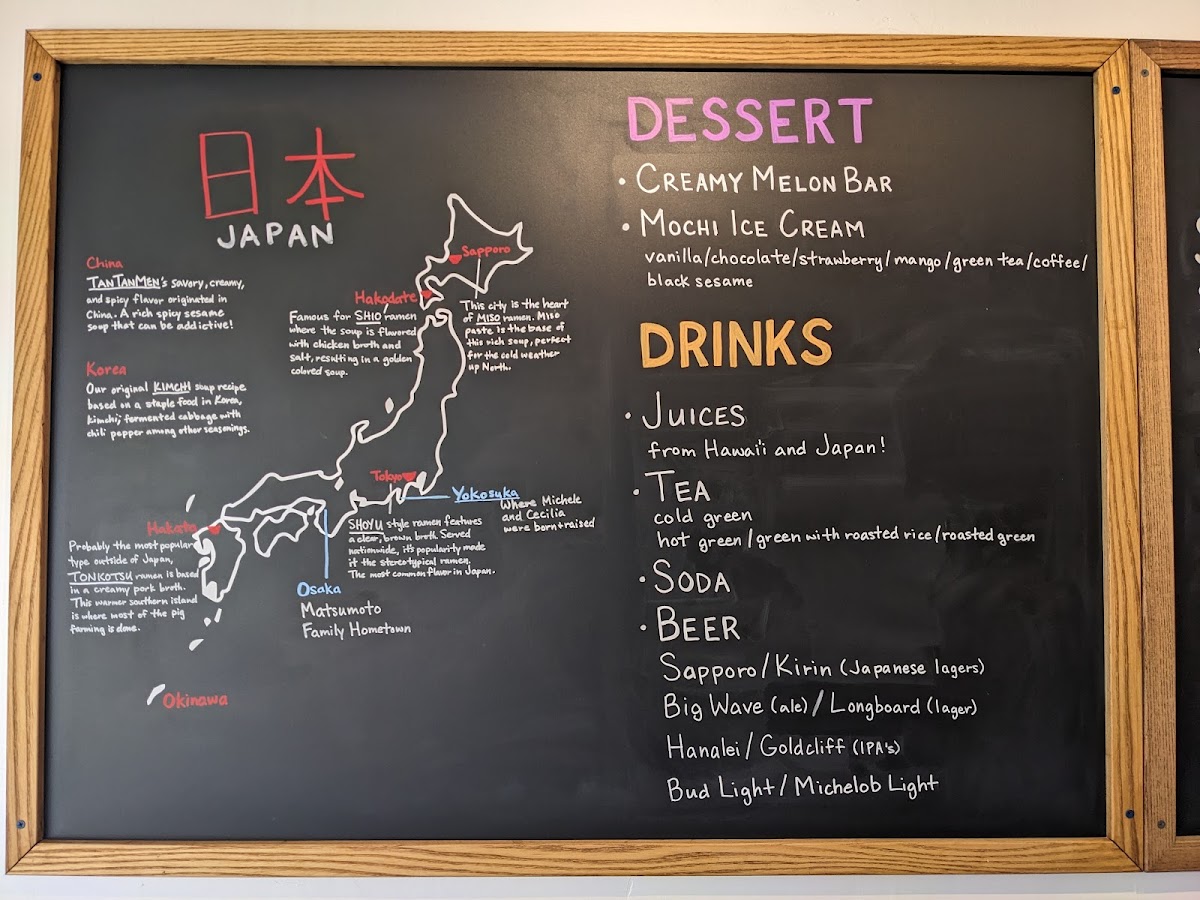 日本
JAPAN
China
TANTANMEN's savory, creamy,
and spicy flavor originated in
China. A rich spicy sesame
soup that can be addictive!
Korea
Our original KIMCHI soup recipe
based on a staple food in Korea,
kimchi; fermented cabbage with
chili pepper among other seasonings.
Sapporo
This city is the heart
of MISO ramen. Miso
paste is the base of
this rich soup, perfect
for the cold weather
up North.
Hakodate
Famous for SHIO ramen
where the soup is flavored
with chicken broth and
salt, resulting in a golden
colored soup.
Tokyo
SHOYU style ramen features
a clear, brown broth. Served
nationwide, it's popularity made
it the stereotypical ramen.
The most common flavor in Japan.
Yokosuka
Where Michele
and Cecilia
were born+raised
Hakata
Probably the most popular
type outside of Japan,
TONKOTSU ramen is based
in a creamy pork broth.
This warmer southern island
is where most of the pig
farming is done.
Osaka
Matsumoto
Family Hometown
Okinawa
DESSERT
• CREAMY MELON BAR
• MOCHI ICE CREAM
vanilla/chocolate/strawberry/mango/green tea/coffee/
black sesame
DRINKS
• JUICES
from Hawai'i and Japan!
• TEA
cold green
hot green/green with roasted rice/roasted green
• SODA
• BEER
Sapporo/Kirin (Japanese lagers)
Big Wave (ale)/Longboard (lager)
Hanalei/Goldcliff (IPA's)
Bud Light/Michelob Light